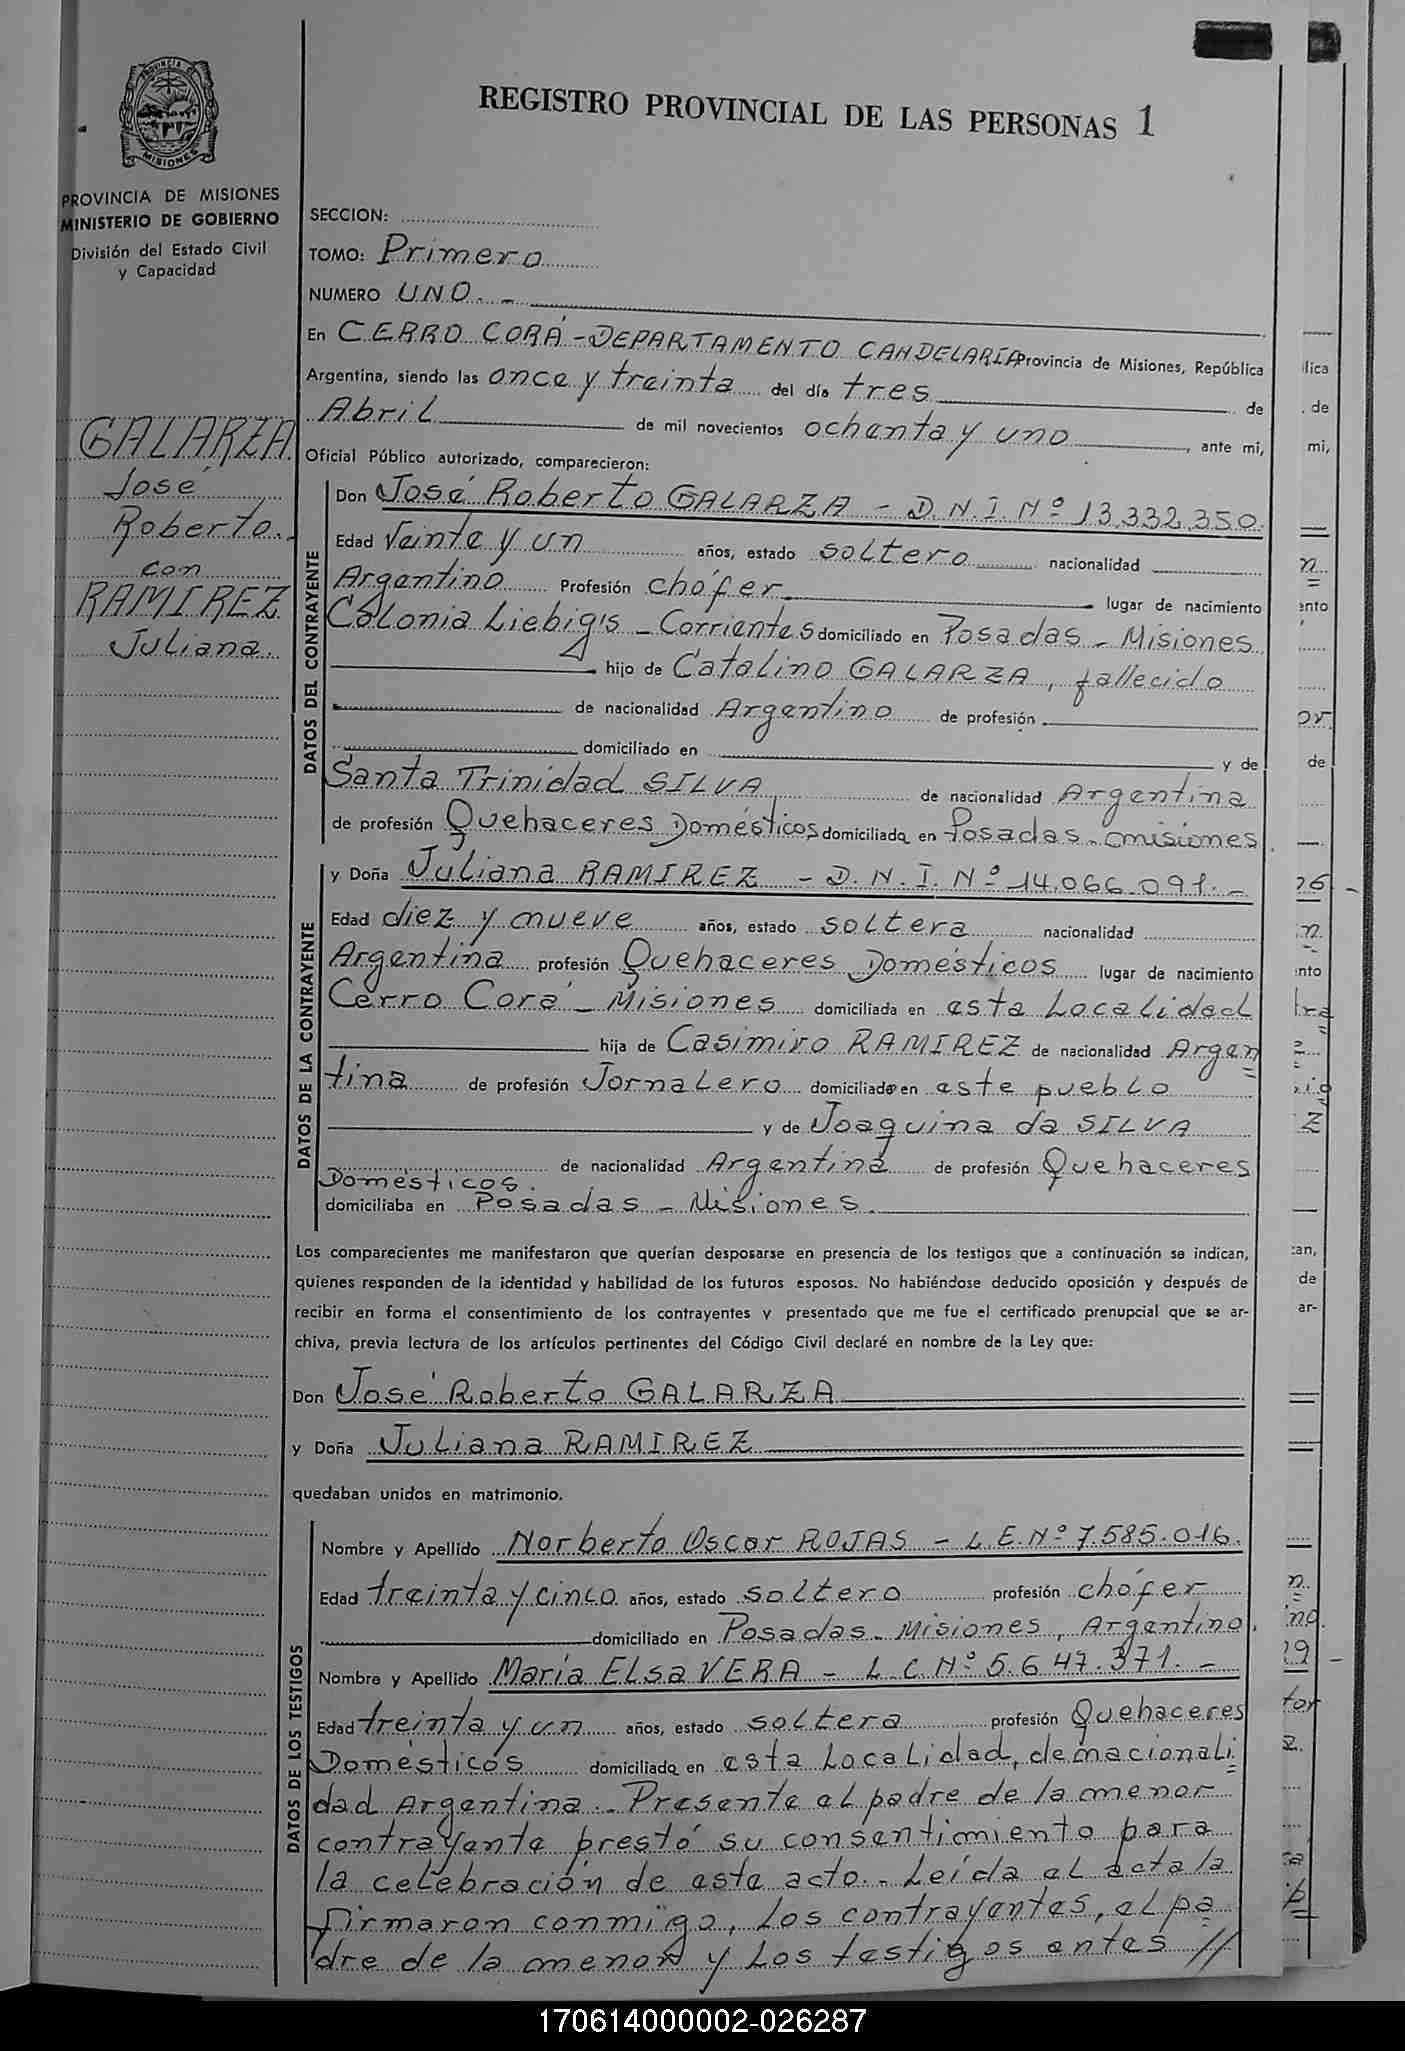 REGISTRO PROVINCIAL DE LAS PERSONAS 1
PROVINCIA DE MISIONES
PROVINCIA DE MISIONES
MINISTERIO DE GOBIERNO
División del Estado Civil
y Capacidad
GALARZA
José
Roberto.
con
RAMIREZ
Juliana.
SECCION:
TOMO: Primero
NUMERO UNO. -
En CERRO CORÁ - DEPARTAMENTO CANDELARIA Provincia de Misiones, República
Argentina, siendo las once y treinta del día tres de
Abril de mil novecientos ochenta y uno, ante mi,
Oficial Público autorizado, comparecieron:
DATOS DEL CONTRAYENTE
Don José Roberto GALARZA - D.N.I. Nº 13.332.350.
Edad Veinte y un años, estado soltero nacionalidad
Argentino Profesión chófer lugar de nacimiento
Colonia Liebig's - Corrientes domiciliado en Posadas - Misiones
hijo de Catalino GALARZA, fallecido
de nacionalidad Argentino de profesión
domiciliado en y de
Santa Trinidad SILVA de nacionalidad Argentina
de profesión Quehaceres Domésticos domiciliada en Posadas - misiones
DATOS DE LA CONTRAYENTE
y Doña Juliana RAMIREZ - D.N.I. Nº 14.066.091. -
Edad diez y nueve años, estado soltera nacionalidad
Argentina profesión Quehaceres Domésticos lugar de nacimiento
Cerro Corá - Misiones domiciliada en esta Localidad
hija de Casimiro RAMIREZ de nacionalidad Argen
tina de profesión Jornalero domiciliado en este pueblo
y de Joaquina da SILVA
de nacionalidad Argentina de profesión Quehaceres
Domésticos.
domiciliaba en Posadas - Misiones.
Los comparecientes me manifestaron que querían desposarse en presencia de los testigos que a continuación se indican,
quienes responden de la identidad y habilidad de los futuros esposos. No habiéndose deducido oposición y después de
recibir en forma el consentimiento de los contrayentes y presentado que me fue el certificado prenupcial que se ar-
chiva, previa lectura de los artículos pertinentes del Código Civil declaré en nombre de la Ley que:
Don José Roberto GALARZA
y Doña Juliana RAMIREZ
quedaban unidos en matrimonio.
DATOS DE LOS TESTIGOS
Nombre y Apellido Norberto Oscar ROJAS - L.E. Nº 7.585.016.
Edad treinta y cinco años, estado soltero profesión chófer
domiciliado en Posadas - Misiones, Argentino.
Nombre y Apellido María Elsa VERA - L.C. Nº 5.647.371. -
Edad treinta y un años, estado soltera profesión Quehaceres
Domésticos domiciliada en esta Localidad, de nacionali
dad Argentina. - Presente el padre de la menor
contrayente prestó su consentimiento para
la celebración de este acto. - Leída el acta la
firmaron conmigo, los contrayentes, el pa
dre de la menor y los testigos antes //
170614000002-026287